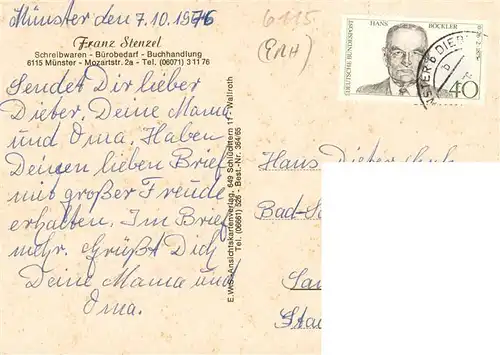 Münster den 7.10.1976
6115
(GRH)
Franz Stenzel
Schreibwaren - Bürobedarf - Buchhandlung
6115 Münster - Mozartstr. 2a - Tel. (06071) 31176
Sendet Dir lieber
Dieter, Deine Mama
und Oma. Haben
Deinen lieben Brief
mit großer Freude
erhalten. Im Brief
mehr. Grüßt Dich
Deine Mama und
Oma.
E.W.S.-Ansichtskartenverlag, 649 Schlüchtern 11 - Wallroth
Tel. (06661) 528 - Best.-Nr. 364/65
DEUTSCHE BUNDESPOST
HANS BÖCKLER
40
Hans Dieter
Bad-S
San
Sta